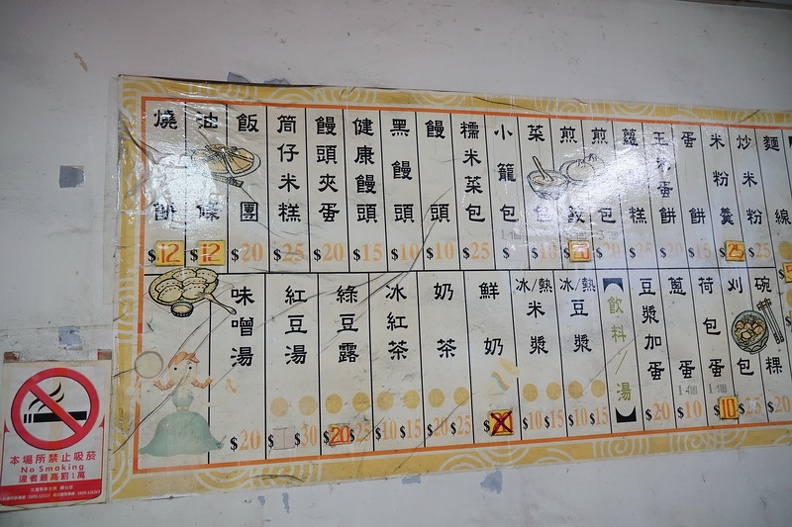 麵線
炒米粉 $15
米粉羹 $25
蛋餅
玉米蛋餅
蘿蔔糕
煎包
煎餃
菜包
小籠包
糯米菜包 $25
饅頭 $10
黑饅頭 $10
健康饅頭 $15
饅頭夾蛋 $20
筒仔米糕 $25
飯團 $20
油條 $12
燒餅 $12
碗粿
刈包
荷包蛋 1個 $10
蔥蛋 1個 $10
豆漿加蛋 $20
飲料/湯
冰/熱豆漿 $10 $15
冰/熱米漿 $10 $15
鮮奶
奶茶 $20 $25
冰紅茶 $10 $15
綠豆露 $20 $25
紅豆湯 $30
味噌湯 $20
本場所禁止吸菸
No Smoking
違者最高罰1萬